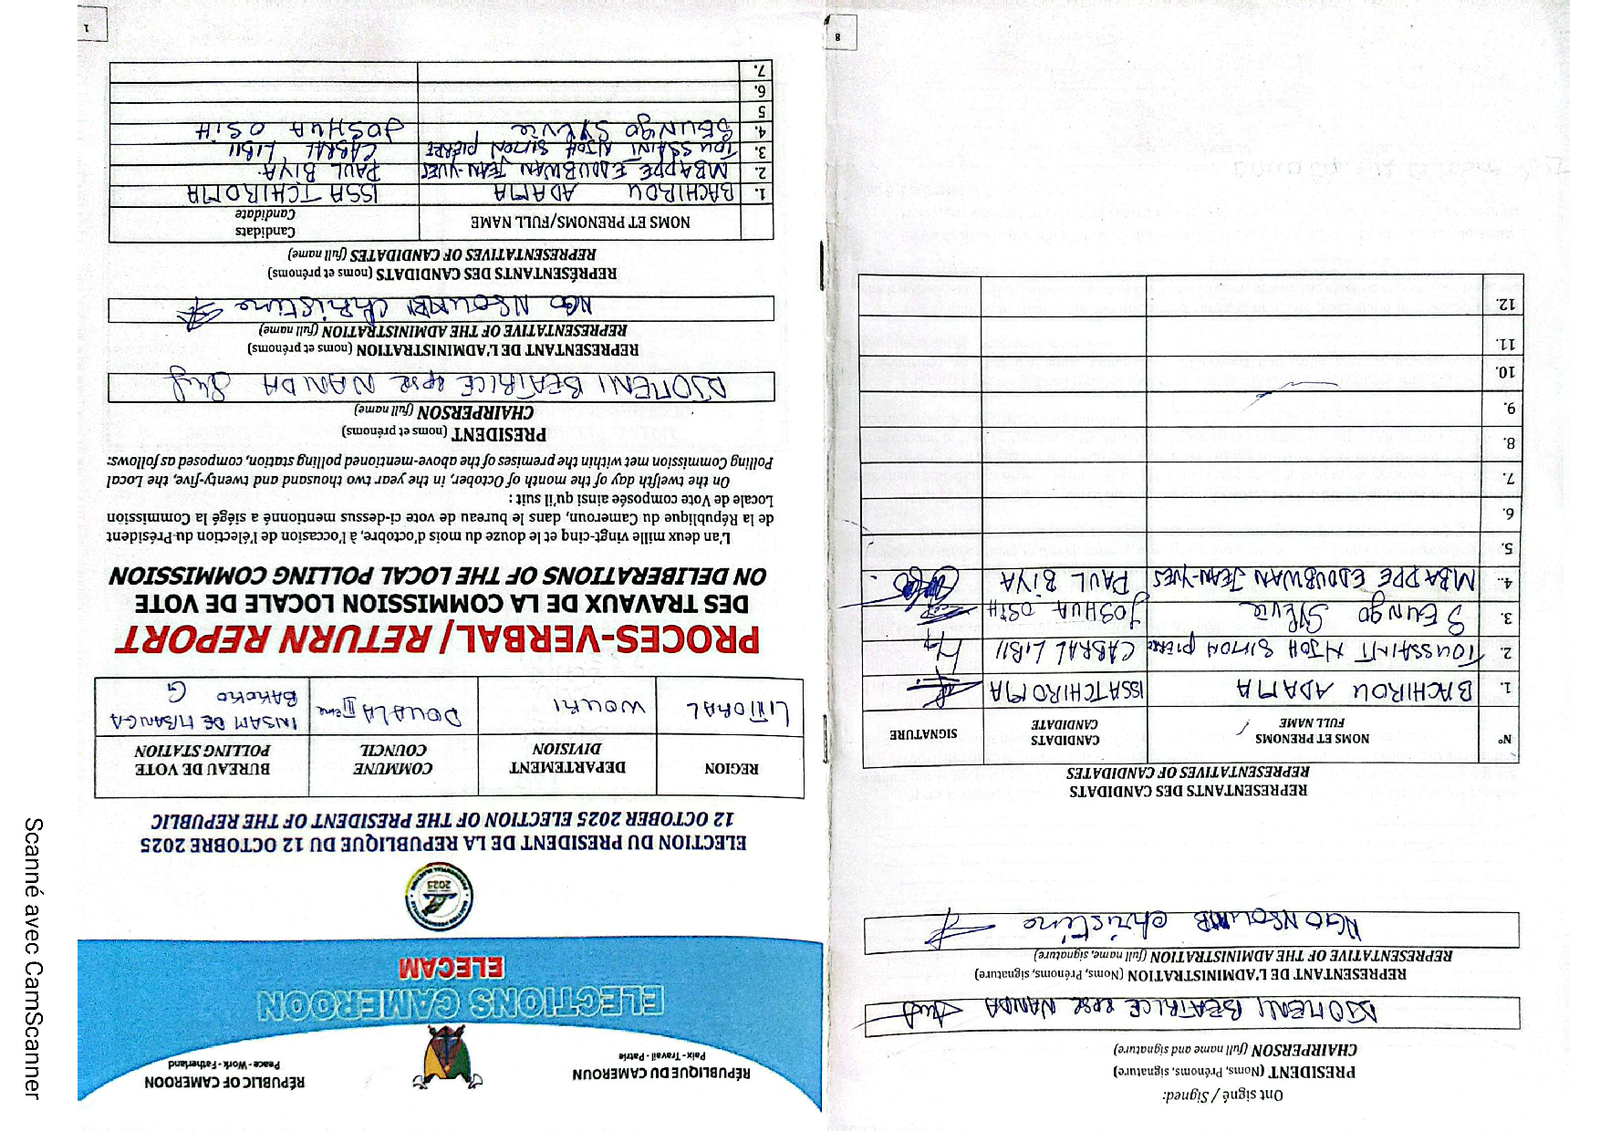 RÉPUBLIQUE DU CAMEROUN
Paix - Travail - Patrie
RÉPUBLIC OF CAMEROON
Peace - Work - Fatherland
ELECTIONS CAMEROON
ELECAM
ELECTION DU PRESIDENT DE LA REPUBLIQUE DU 12 OCTOBRE 2025
12 OCTOBER 2025 ELECTION OF THE PRESIDENT OF THE REPUBLIC
REGION
DEPARTEMENT
DIVISION
COMMUNE
COUNCIL
BUREAU DE VOTE
POLLING STATION
LITTORAL
WOURI
DOUALA IIème
INSAM DE MBANGA
BAKOKO G
PROCES-VERBAL/ RETURN REPORT
DES TRAVAUX DE LA COMMISSION LOCALE DE VOTE
ON DELIBERATIONS OF THE LOCAL POLLING COMMISSION
L'an deux mille vingt-cinq et le douze du mois d'octobre, à l'occasion de l'élection du Président
de la République du Cameroun, dans le bureau de vote ci-dessus mentionné a siégé la Commission
Locale de Vote composée ainsi qu'il suit :
On the twelfth day of the month of October, in the year two thousand and twenty-five, the Local
Polling Commission met within the premises of the above-mentioned polling station, composed as follows:
PRESIDENT (noms et prénoms)
CHAIRPERSON (full name)
DJOMENI BEATRICE epse NANDA
REPRESENTANT DE L'ADMINISTRATION (noms et prénoms)
REPRESENTATIVE OF THE ADMINISTRATION (full name)
NGO NSOUMB Christine
REPRÉSENTANTS DES CANDIDATS (noms et prénoms)
REPRESENTATIVES OF CANDIDATES (full name)
NOMS ET PRENOMS/FULL NAME
Candidats
Candidate
1. BACHIROU ADAMA ISSA TCHIROMA
2. MBAPPE EDOUBWAN JEAN-YVES PAUL BIYA
3. TOUSSAINT NJOH SIMON PIERRE CABRAL LIBII
4. SEUNGO SYLVIE JOSHUA OSIH
5
6.
7.
1
Ont signé / Signed:
PRESIDENT (Noms, Prénoms, signature)
CHAIRPERSON (full name and signature)
DJOMENI BEATRICE epse NANDA
REPRESENTANT DE L'ADMINISTRATION (Noms, Prénoms, signature)
REPRESENTATIVE OF THE ADMINISTRATION (full name, signature)
NGO NSOUMB Christine
REPRESENTANTS DES CANDIDATS
REPRESENTATIVES OF CANDIDATES
N°
NOMS ET PRENOMS
FULL NAME
CANDIDATS
CANDIDATE
SIGNATURE
1. BACHIROU ADAMA ISSA TCHIROMA
2. TOUSSAINT NJOH SIMON PIERRE CABRAL LIBII
3. SEUNGO Sylvie JOSHUA OSIH
4. MBAPPE EDOUBWAN JEAN-YVES PAUL BIYA
5.
6.
7.
8.
9.
10.
11.
12.
8
Scanné avec CamScanner